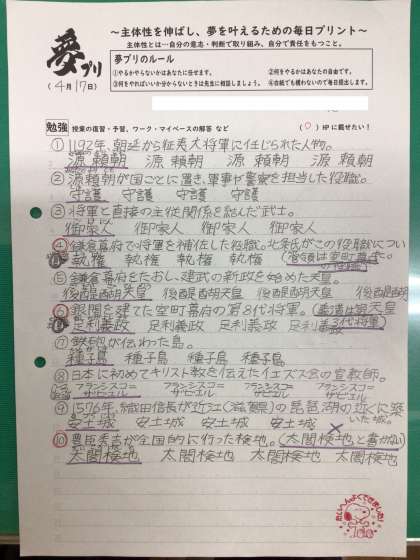 夢プリ
(4月17日)
〜主体性を伸ばし、夢を叶えるための毎日プリント〜
主体性とは…自分の意志・判断で取り組み、自分で責任をもつこと。
夢プリのルール
①やるかやらないかはあなたに任せます。 ②何をやるかはあなたの自由です。
③何をやればいいか分からないときは先生に相談しましょう。 ④白紙でも構わないので毎日提出します。
勉強 授業の復習・予習、ワーク・マイペースの解答 など (○)HPに載せたい!
①1192年、朝廷から征夷大将軍に任じられた人物。
源頼朝 源頼朝 源頼朝 源頼朝
②源頼朝が国ごとに置き、軍事が警察を担当した役職。
守護 守護 守護 守護
③将軍と直接の主従関係を結んだ武士。
御家人 御家人 御家人 御家人
④鎌倉幕府で将軍を補佐した役職。北条氏がこの役職につい
執権 執権 執権 執権 (管領は室町幕府の役職)
⑤鎌倉幕府をたおし、建武の新政を始めた天皇。
後醍醐天皇 後醍醐天皇 後醍醐天皇 後醍醐天皇
⑥銀閣を建てた室町幕府の第8代将軍。(義満は
足利義政 足利義政 足利義政 足利義政 3代将軍)
⑦鉄砲が伝わった島。
種子島 種子島 種子島 種子島
⑧日本に初めてキリスト教を伝えたイエズス会の宣教師。
フランシスコ=ザビエル フランシスコ=ザビエル フランシスコ=ザビエル フランシスコ=ザビエル
⑨1576年、織田信長が近江(滋賀県)の琵琶湖の近くに築いた城。
安土城 安土城 安土城 安土城
⑩豊臣秀吉が全国的に行った検地。(太閣検地と書かない)
太閤検地 太閤検地 太閤検地 太閤検地